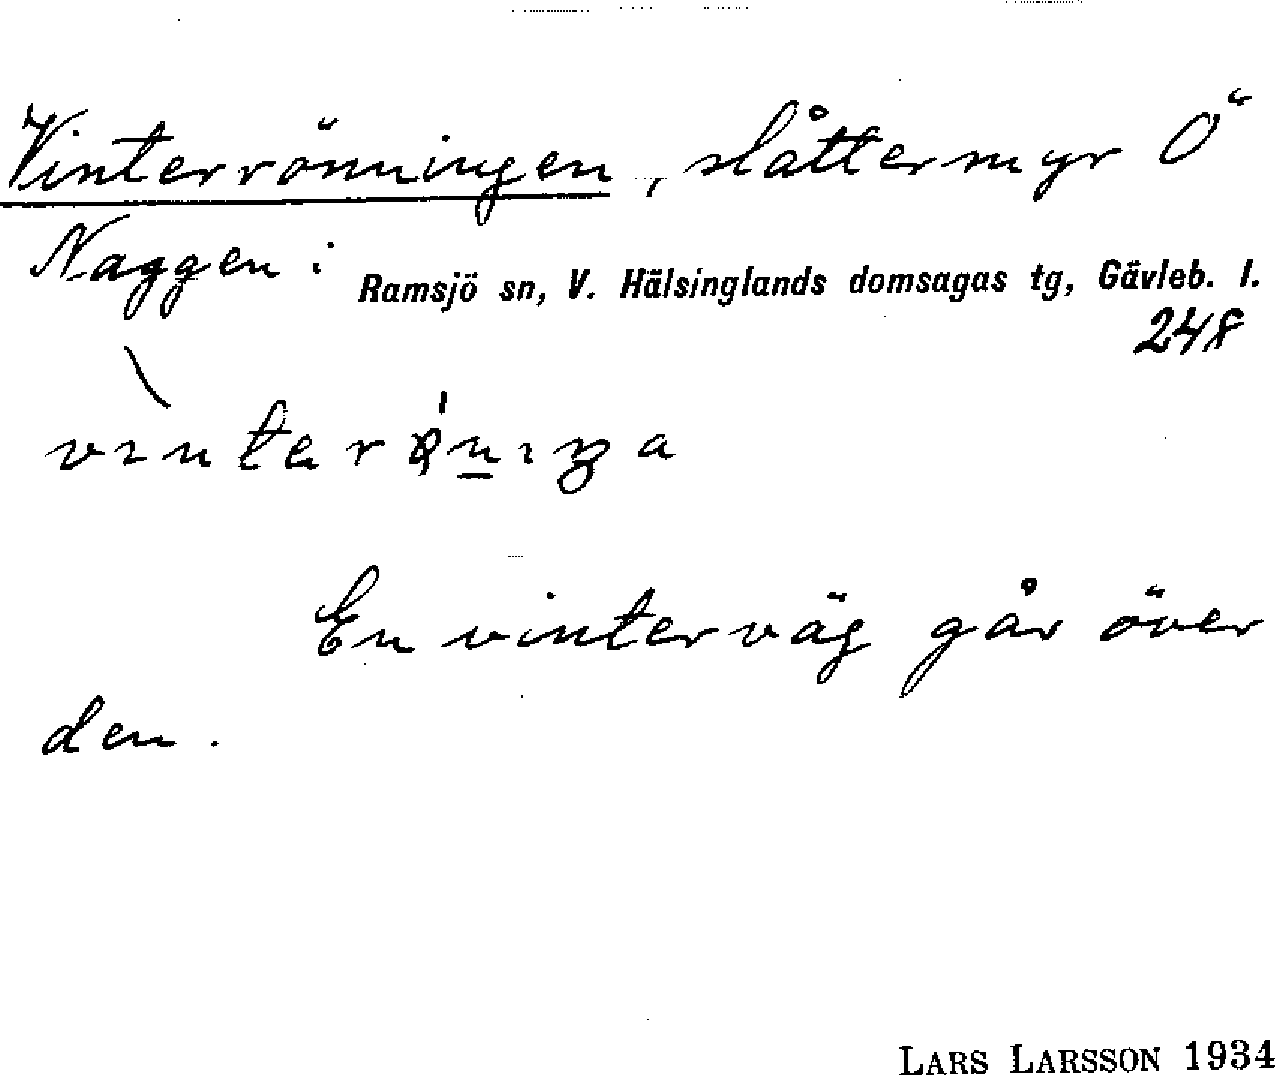 Vinterrönningen, slåttermyr Ö
Naggen i Ramsjö sn, V. Hälsinglands domsagas tg, Gävleb. l.
248
En vinterväg går över
den.
LARS LARSSON 1934